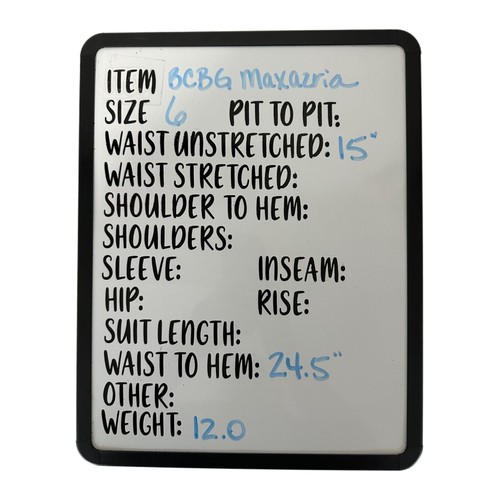 ITEM BCBG Maxazria
SIZE 6 PIT TO PIT:
WAIST UNSTRETCHED: 15"
WAIST STRETCHED:
SHOULDER TO HEM:
SHOULDERS:
SLEEVE: INSEAM:
HIP: RISE:
SUIT LENGTH:
WAIST TO HEM: 24.5"
OTHER:
WEIGHT: 12.0